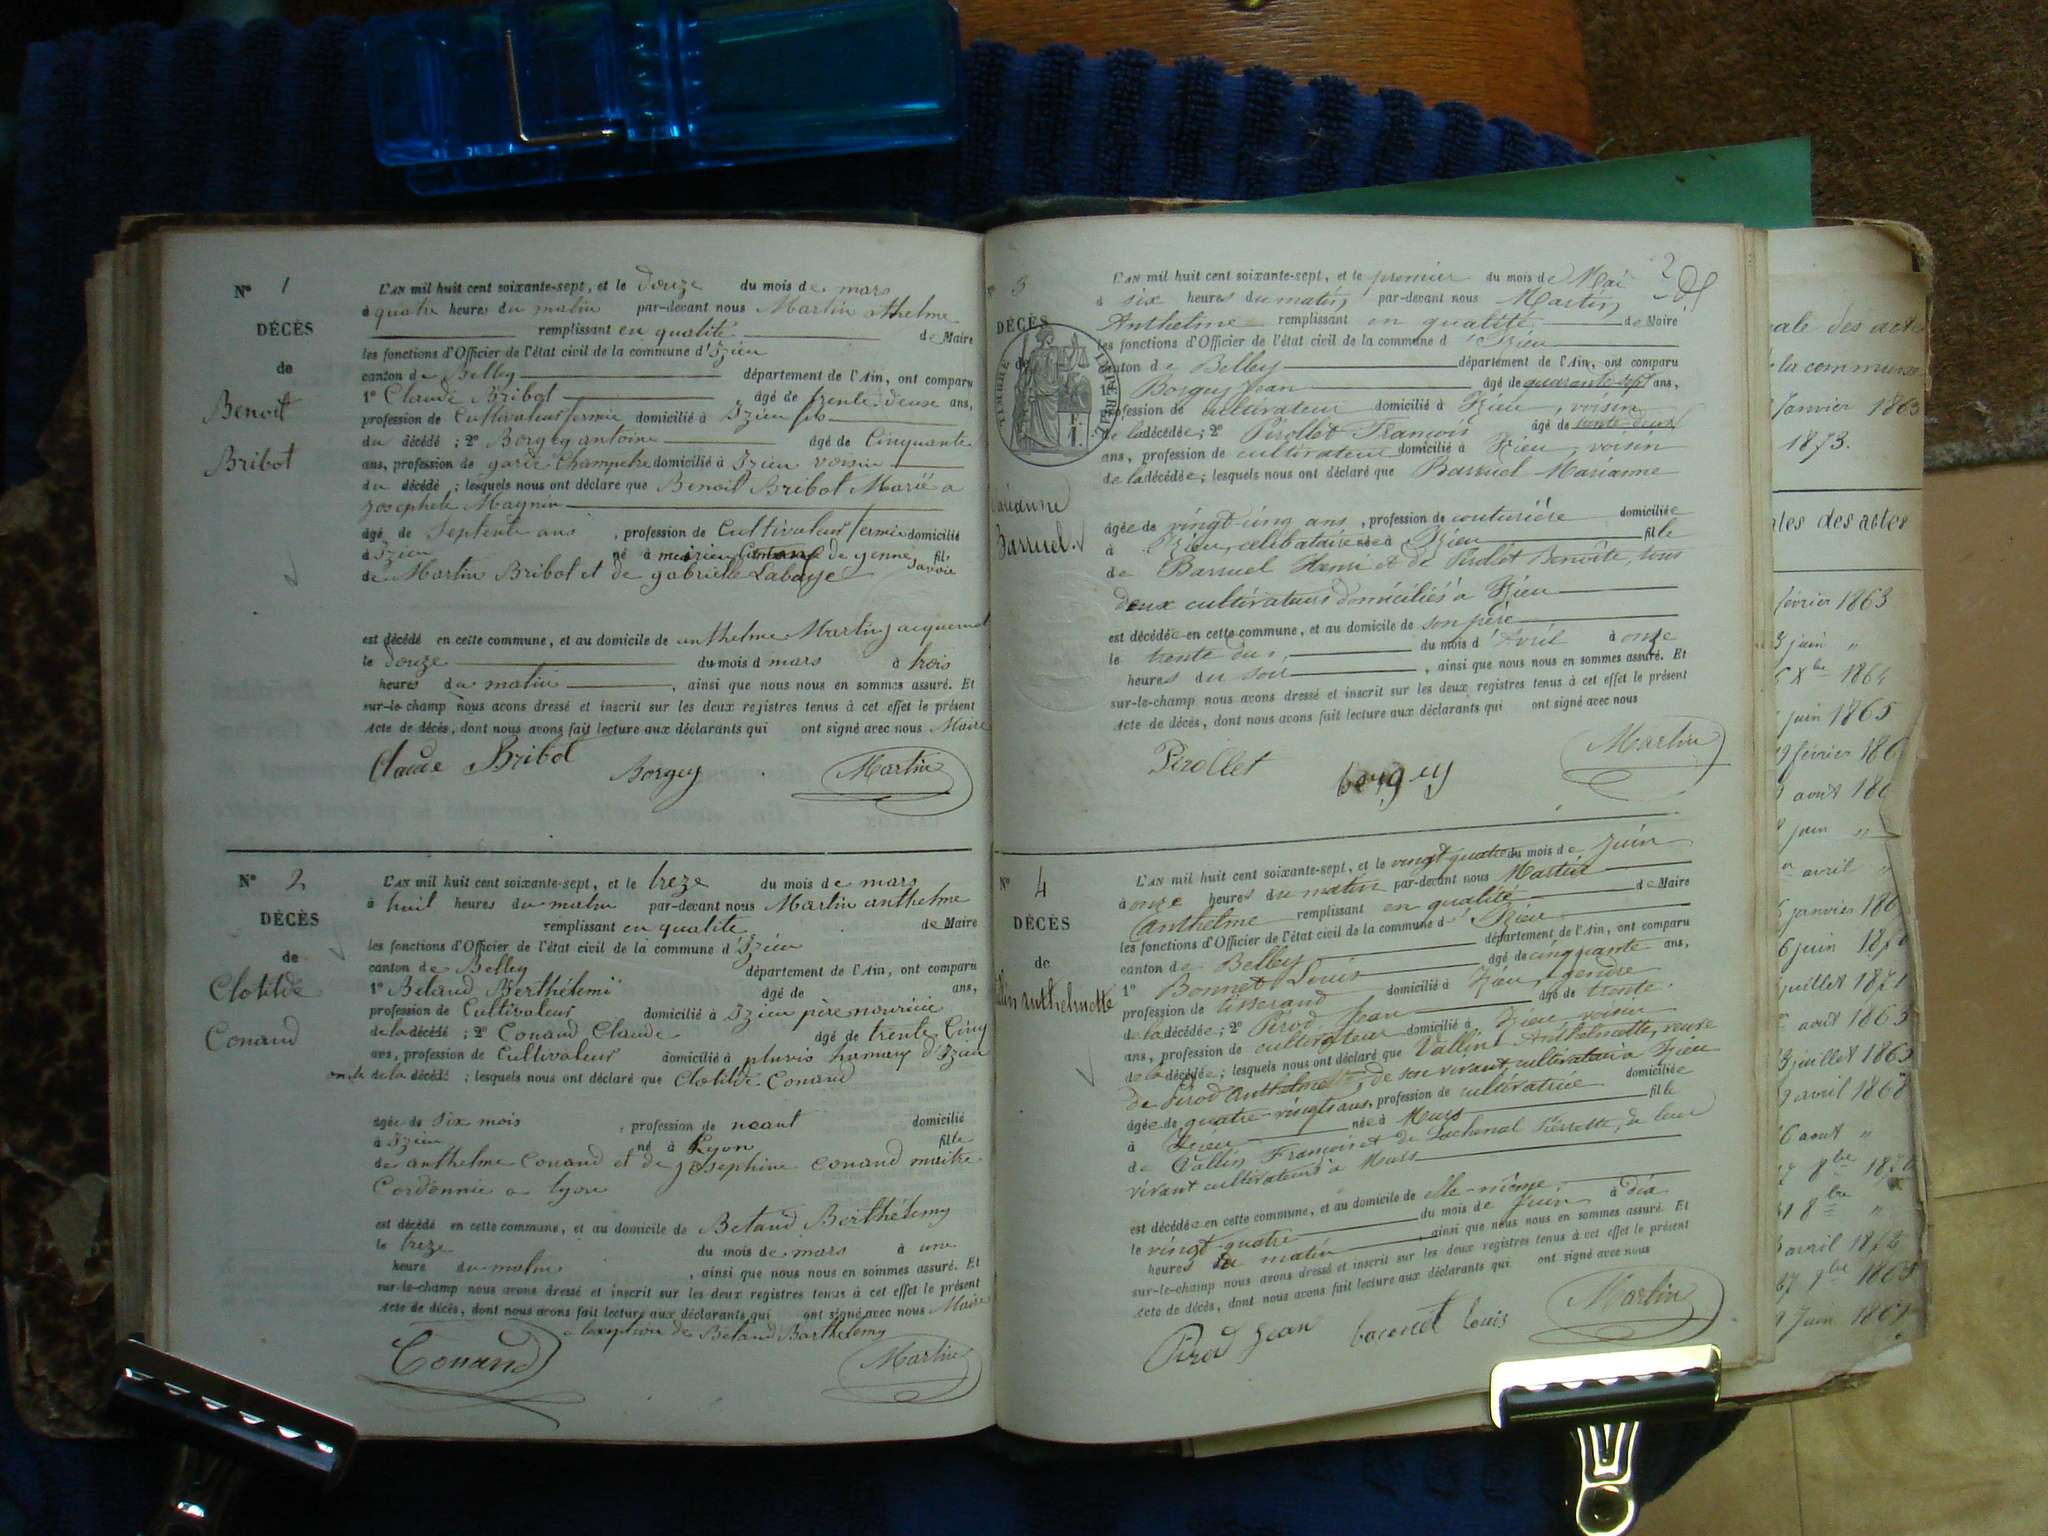 N° 1
DÉCÈS
de
Benoit
Bribot
L'AN mil huit cent soixante-sept, et le douze du mois de mars
à quatre heures du matin par-devant nous Martin Athelme
remplissant en qualité de Maire
les fonctions d'Officier de l'état civil de la commune d'Izieu
canton de Belley département de l'Ain, ont comparu
1° Claude Bribot âgé de trente deuse ans,
profession de Cultivateur fermie domicilié à Izieu fils
du décédé ; 2° Borgey antoine âgé de Cinquante
ans, profession de garde Champetre domicilié à Izieu voisin
du décédé ; lesquels nous ont déclaré que Benoit Bribot Marié a
Josephete Magnin
âgé de Septente ans , profession de Cultivateur fermie domicilié
à Izieu né à de yenne fils
Savoie
de Martin Bribot et de gabrielle Labaye
est décédé en cette commune, et au domicile de anthelme Martin jacquemet
le douze du mois d mars à trois
heures du matin , ainsi que nous nous en sommes assuré. Et
sur-le-champ nous avons dressé et inscrit sur les deux registres tenus à cet effet le présent
Acte de décès, dont nous avons fait lecture aux déclarants qui ont signé avec nous Maire
Claude Bribot Borgey Martin
N° 2
DÉCÈS
de
Clotilde
Conand
L'AN mil huit cent soixante-sept, et le treze du mois de mars
à huit heures du matin par-devant nous Martin anthelme
remplissant en qualite de Maire
les fonctions d'Officier de l'état civil de la commune d'Izieu
canton de Belley département de l'Ain, ont comparu
1° Betand Berthélemi âgé de ans,
profession de Cultivateur domicilié à Izieu père nouricie
de la décédé ; 2° Conand Claude âgé de trente Cinq
ans, profession de Cultivateur domicilié à pluvis hamaux d'Izieu
oncle de la décédé ; lesquels nous ont déclaré que Clotilde Conand
âgée de Six mois , profession de neant domicilié
à Izieu né à Lyon fille
de anthelme Conand et de Josephine Conand maitre
Cordonnie a lyon
est décédé en cette commune, et au domicile de Betand Berthélemy
le treze du mois de mars à une
heure du matin , ainsi que nous nous en sommes assuré. Et
sur-le-champ nous avons dressé et inscrit sur les deux registres tenus à cet effet le présent
Acte de décès, dont nous avons fait lecture aux déclarants qui ont signé avec nous Maire
a lexeption de Betand Barthélemy
Conand Martin
3
DÉCÈS
de
TIMBRE IMPÉRIAL
Marianne
Barruel
L'AN mil huit cent soixante-sept, et le premier du mois de Mai
à six heures du matin, par-devant nous Martin
Anthelme remplissant en qualité de Maire
les fonctions d'Officier de l'état civil de la commune d'Izieu
canton de Belley département de l'Ain, ont comparu
1° Borgey Jean âgé de quarante-sept ans,
profession de cultivateur domicilié à Izieu, voisin
de la décédée ; 2° Pirollet François âgé de trente deux
ans, profession de cultivateur domicilié à Izieu, voisin
de la décédée ; lesquels nous ont déclaré que Barruel Marianne
âgée de vingt cinq ans , profession de couturière domiciliée
à Izieu, célibataire née à Izieu fille
de Barruel Henri et de Pirollet Benoîte, tous
deux cultivateurs domiciliés à Izieu
est décédée en cette commune, et au domicile de son père
le trente du mois d'Avril à onze
heures du soir , ainsi que nous nous en sommes assuré. Et
sur-le-champ nous avons dressé et inscrit sur les deux registres tenus à cet effet le présent
Acte de décès, dont nous avons fait lecture aux déclarants qui ont signé avec nous
Pirollet borgey Martin
N° 4
DÉCÈS
de
Vallin anthelmette
L'AN mil huit cent soixante-sept, et le vingt quatre du mois de Juin
à onze heures du matin par-devant nous Martin
Anthelme remplissant en qualité de Maire
les fonctions d'Officier de l'état civil de la commune d'Izieu
canton de Belley département de l'Ain, ont comparu
1° Bonnet Louis âgé de cinquante ans,
profession de tisserand domicilié à Izieu, gendre
de la décédée ; 2° Pérod Jean âgé de trente
ans, profession de cultivateur domicilié à Izieu voisin
de la décédée ; lesquels nous ont déclaré que Vallin Anthelmette, veuve
de Pérod Anthelme, de son vivant, cultivateur à Izieu
âgée de quatre-vingts ans, profession de cultivatrice domiciliée
à Izieu née à Murs fille
de Vallin François et de Lachenal Pierrette, de leur
vivant cultivateurs à Murs
est décédée en cette commune, et au domicile de elle-même,
le vingt-quatre du mois de Juin à dix
heures du matin , ainsi que nous nous en sommes assuré. Et
sur-le-champ nous avons dressé et inscrit sur les deux registres tenus à cet effet le présent
Acte de décès, dont nous avons fait lecture aux déclarants qui ont signé avec nous
Pirod Jean Louis Martin
des actes
la commune
Janvier 1863
1873.
des actes
février 1863
juin "
1864
juin 1865
février 186
août 186
juin "
avril "
janvier 186
6 juin 1870
juillet 1871
août 1863
juillet 1865
avril 1868
août "
8bre 1870
8bre "
avril 1872
Juin 1869